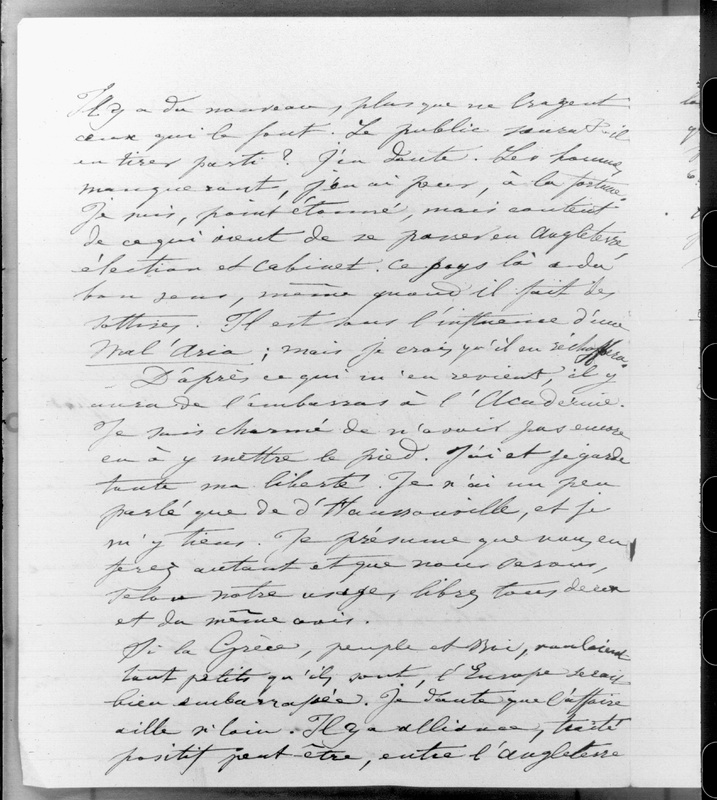 Il y a du nouveau, plus que ne le jugent
ceux qui le font. Le public saura-t-il
en tirer parti ? J'en doute. Les hommes
manqueront, j'en ai peur, à la fortune.
Je suis, point étonné, mais content
de ce qui vient de se passer en Angleterre
élection et cabinet. Ce pays là a du
bon sens, même quand il fait des
sottises. Il est sous l'influence d'une
Mal'Aria ; mais je crois qu'il en réchappera.
D'après ce qui m'en revient, il y
aura de l'embarras à l'Académie.
Je suis charmé de n'avoir pas encore
eu à y mettre le pied. J'ai et je garde
toute ma liberté. Je n'ai un peu
parlé que de d'Haussonville, et je
m'y tiens. Je présume que vous en
ferez autant et que nous serons,
selon notre usage, libres tous deux
et du même avis.
Si la Grèce, peuple et Roi, voulaient
tout petits qu'ils sont, l'Europe serait
bien embarrassée. Je doute que l'affaire
aille si loin. Il y a alliance, traité
positif peut être, entre l'Angleterre